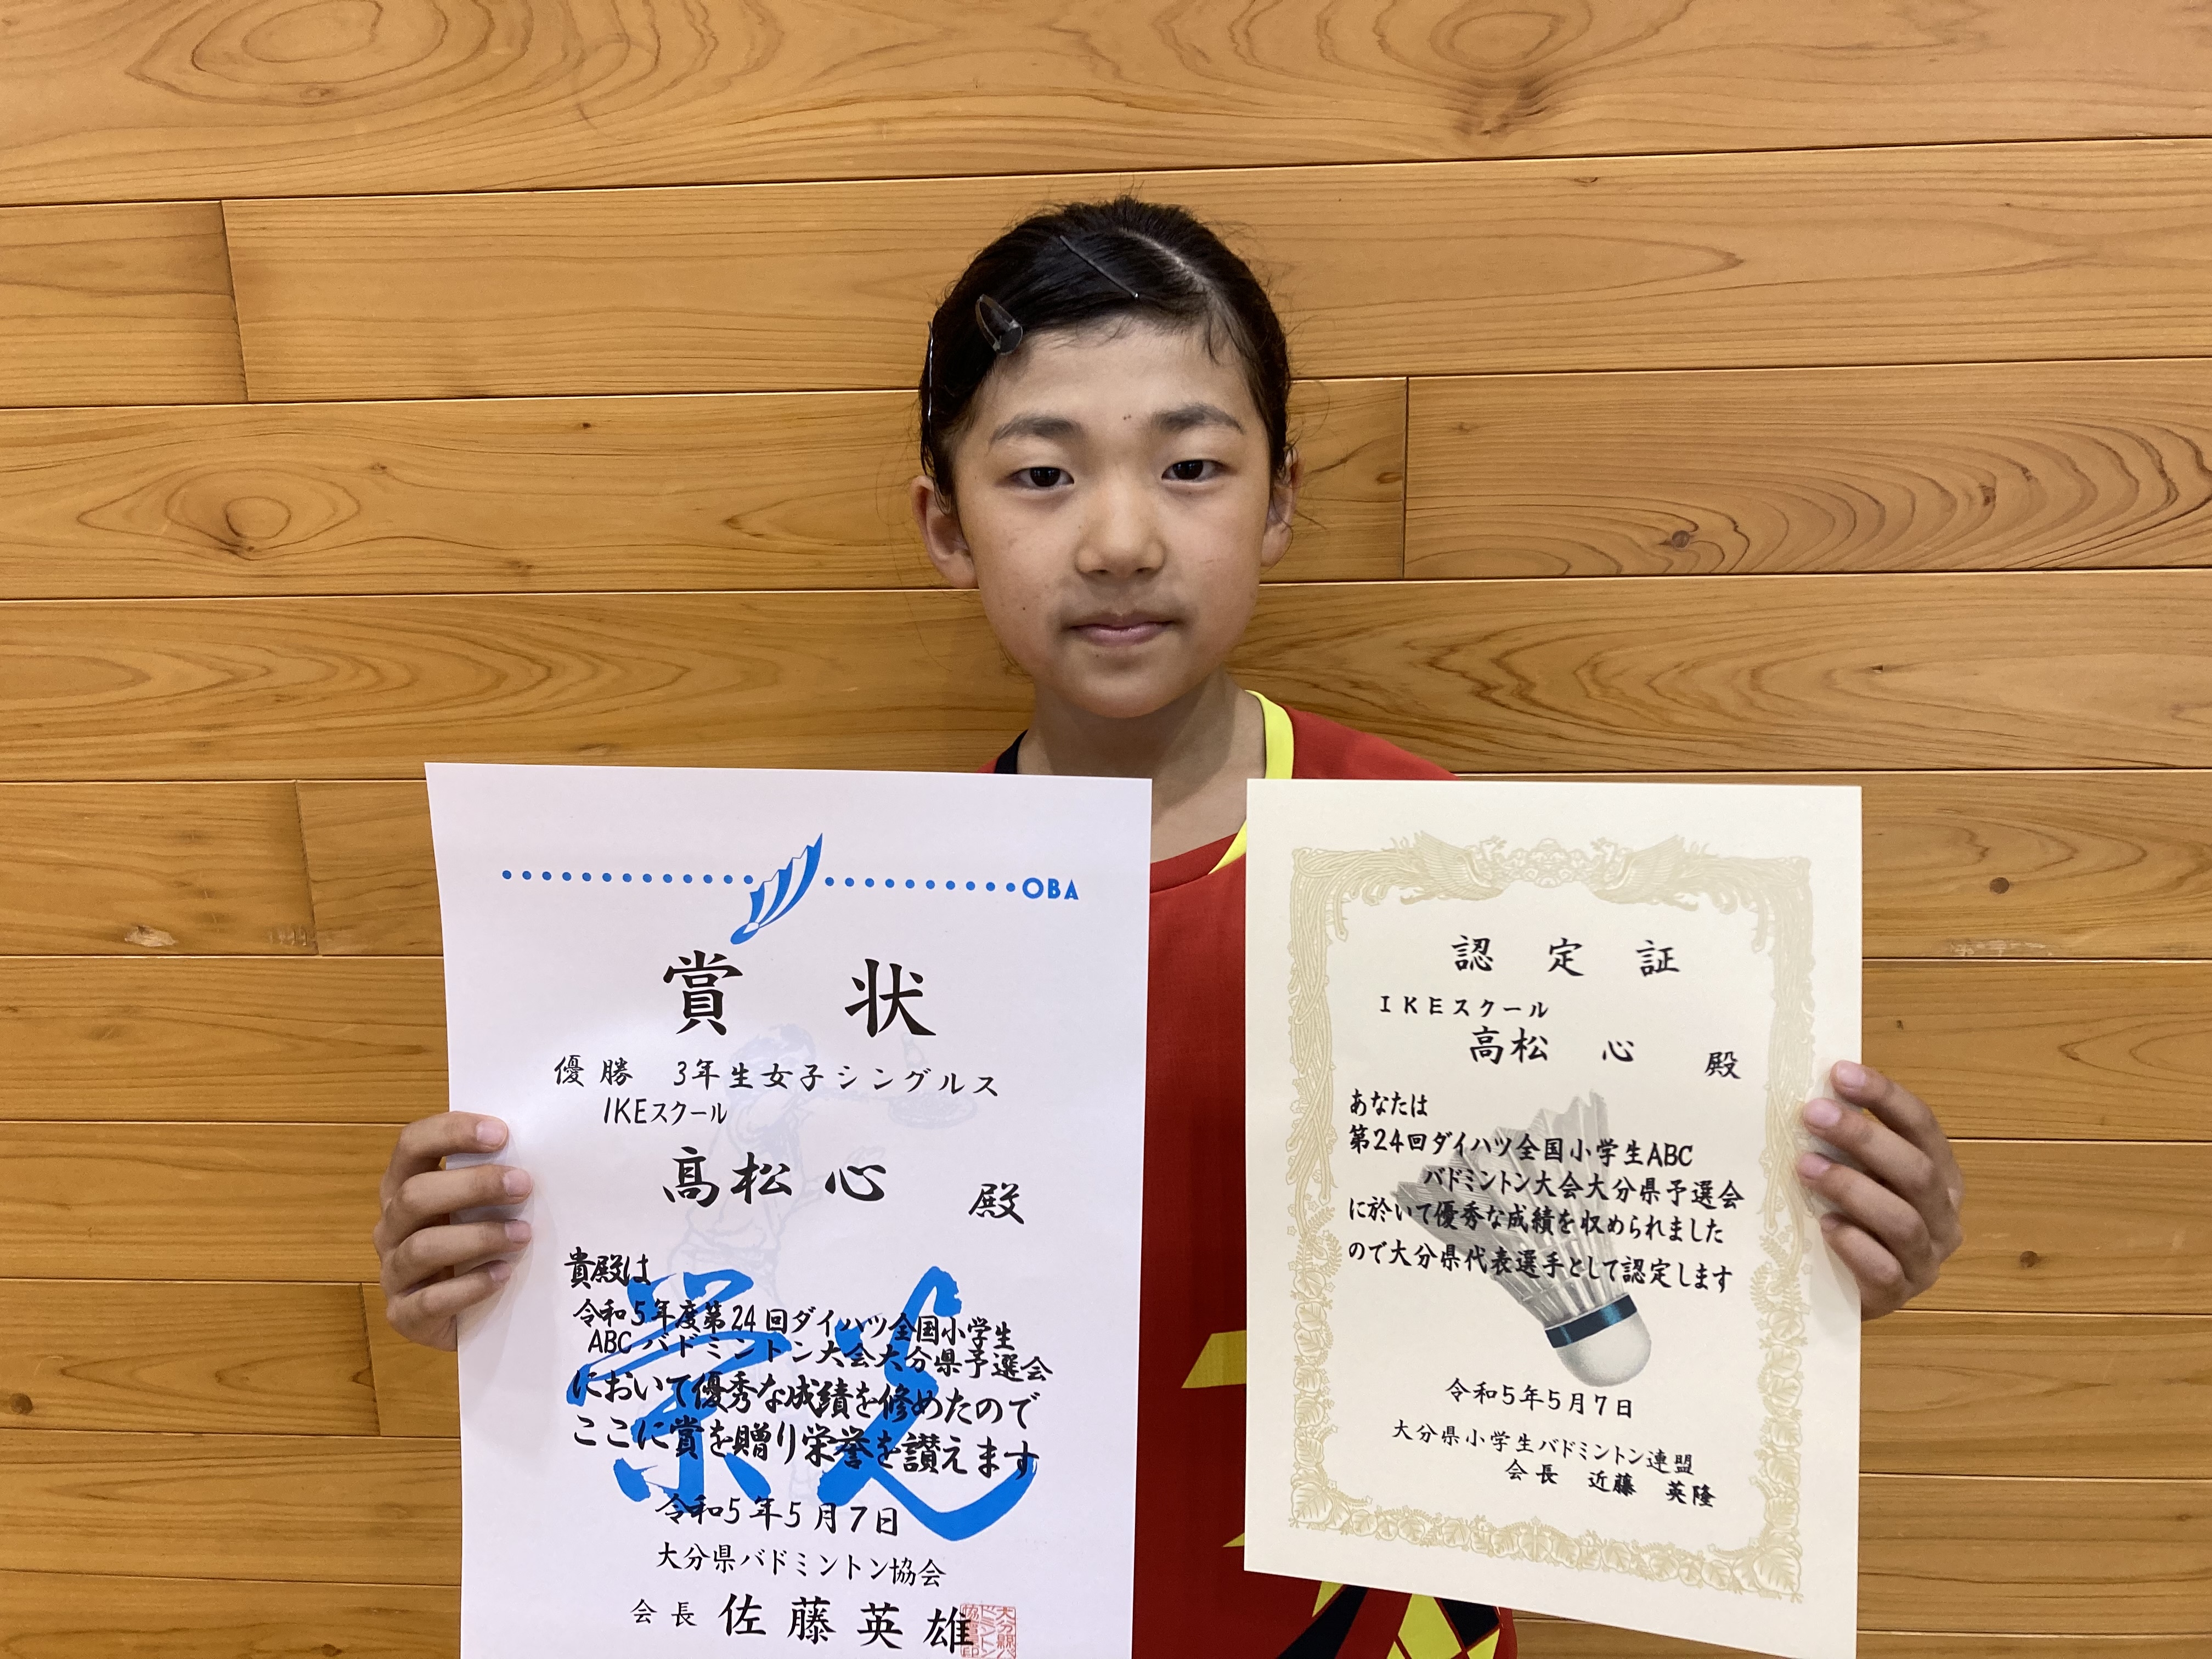 OBA
賞状
優勝 3年生女子シングルス
IKEスクール
髙松 心 殿
貴殿は
令和5年度第24回ダイハツ全国小学生
ABCバドミントン大会大分県予選会
において優秀な成績を修めたので
ここに賞を贈り栄誉を讃えます
令和5年5月7日
大分県バドミントン協会
会長 佐藤英雄
認定証
IKEスクール
髙松 心 殿
あなたは
第24回ダイハツ全国小学生ABC
バドミントン大会大分県予選会
に於いて優秀な成績を収められました
ので大分県代表選手として認定します
令和5年5月7日
大分県小学生バドミントン連盟
会長 近藤 英隆